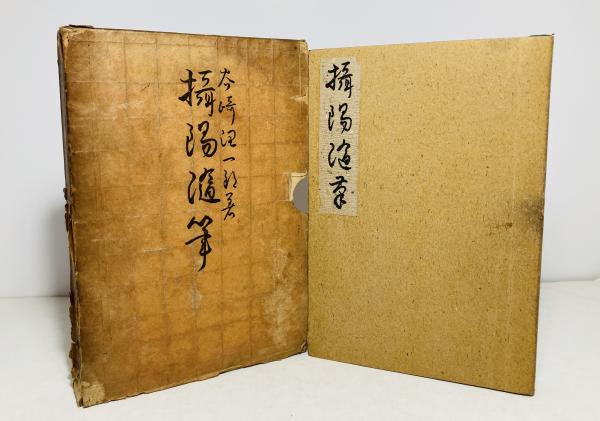 谷崎潤一郎著
攝陽隨筆
攝陽隨筆